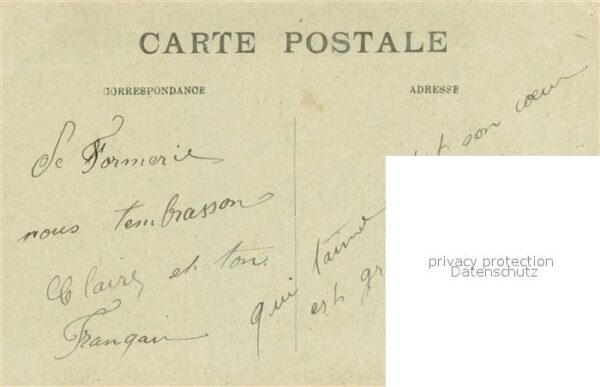 CARTE POSTALE
CORRESPONDANCE
ADRESSE
De Formerie
nous tembrasson
Claire et ton
Françain
son coeur
qui taime
est gr
privacy protection
Datenschutz